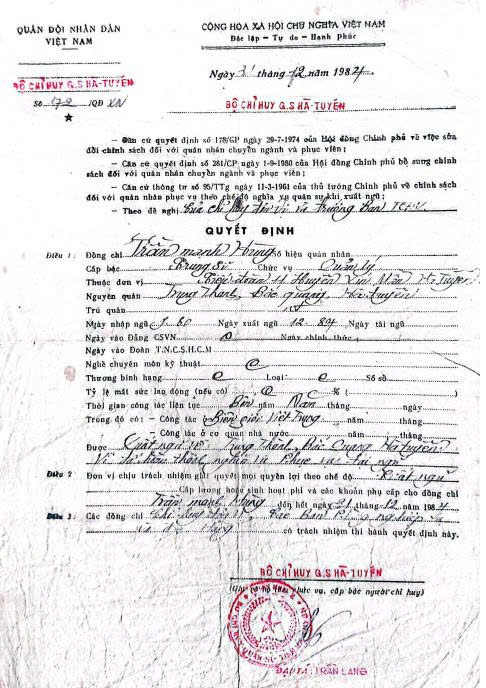 QUÂN ĐỘI NHÂN DÂN
VIỆT NAM
CỘNG HOA XÃ HỘI CHỦ NGHĨA VIỆT NAM
Độc lập - Tự do - Hạnh phúc
Ngày 31 tháng 12 năm 1984
BỘ CHỈ HUY G.S HÀ-TUYÊN
Số 172 /QĐ XN
BỘ CHỈ HUY G.S HÀ-TUYÊN
— Căn cứ quyết định số 178/GP ngày 20-7-1974 của Hội đồng Chính phủ về việc sửa
đổi chính sách đối với quân nhân chuyển ngành và phục viên;
— Căn cứ quyết định số 281/CP ngày 1-9-1980 của Hội đồng Chính phủ bổ sung chính
sách đối với quân nhân chuyển ngành và phục viên;
— Căn cứ thông tư số 95/TTg ngày 11-3-1961 của thủ tướng Chính phủ về chính sách
đối với quân nhân phục vụ theo chế độ nghĩa vụ quân sự khi xuất ngũ;
— Theo đề nghị của chỉ huy đơn vị và trưởng ban
QUYẾT ĐỊNH
Điều 1: Đồng chí Trần mạnh Hùng Số hiệu quân nhân
Cấp bậc Trung sĩ Chức vụ Quản lý
Thuộc đơn vị Tiểu đoàn Huyện Xín Mần Hà Tuyên
Nguyên quán Trung thành Bắc quang Hà Tuyên
Trú quán
Ngày nhập ngũ Ngày xuất ngũ 12 84 Ngày tái ngũ
Ngày vào Đảng CSVN o Ngày chính thức
Ngày vào Đoàn T.N.C.S.H.C.M
Nghề chuyên môn kỹ thuật o
Thương binh hạng o Loại o Số sổ
Tỷ lệ mất sức lao động (nếu có) o % ( )
Thời gian công tác liên tục Bốn năm tháng ngày
Trong đó có: — Công tác Biên giới Việt Trung tháng
— Công tác ở cơ quan nhà nước năm tháng
Được Xuất ngũ về Trung thành Bắc Quang Hà Tuyên
Điều 2 Đơn vị chịu trách nhiệm giải quyết mọi quyền lợi theo chế độ Xuất ngũ
Cấp lương hoặc sinh hoạt phí và các khoản phụ cấp cho đồng chí
Trần mạnh Hùng đến hết ngày 31 tháng 12 năm 1984
Điều 3: Các đồng chí
có trách nhiệm thi hành quyết định này.
BỘ CHỈ HUY G.S HÀ-TUYÊN
chức vụ, cấp bậc người chỉ huy)
ĐẠI TÁ: TRẦN LANG